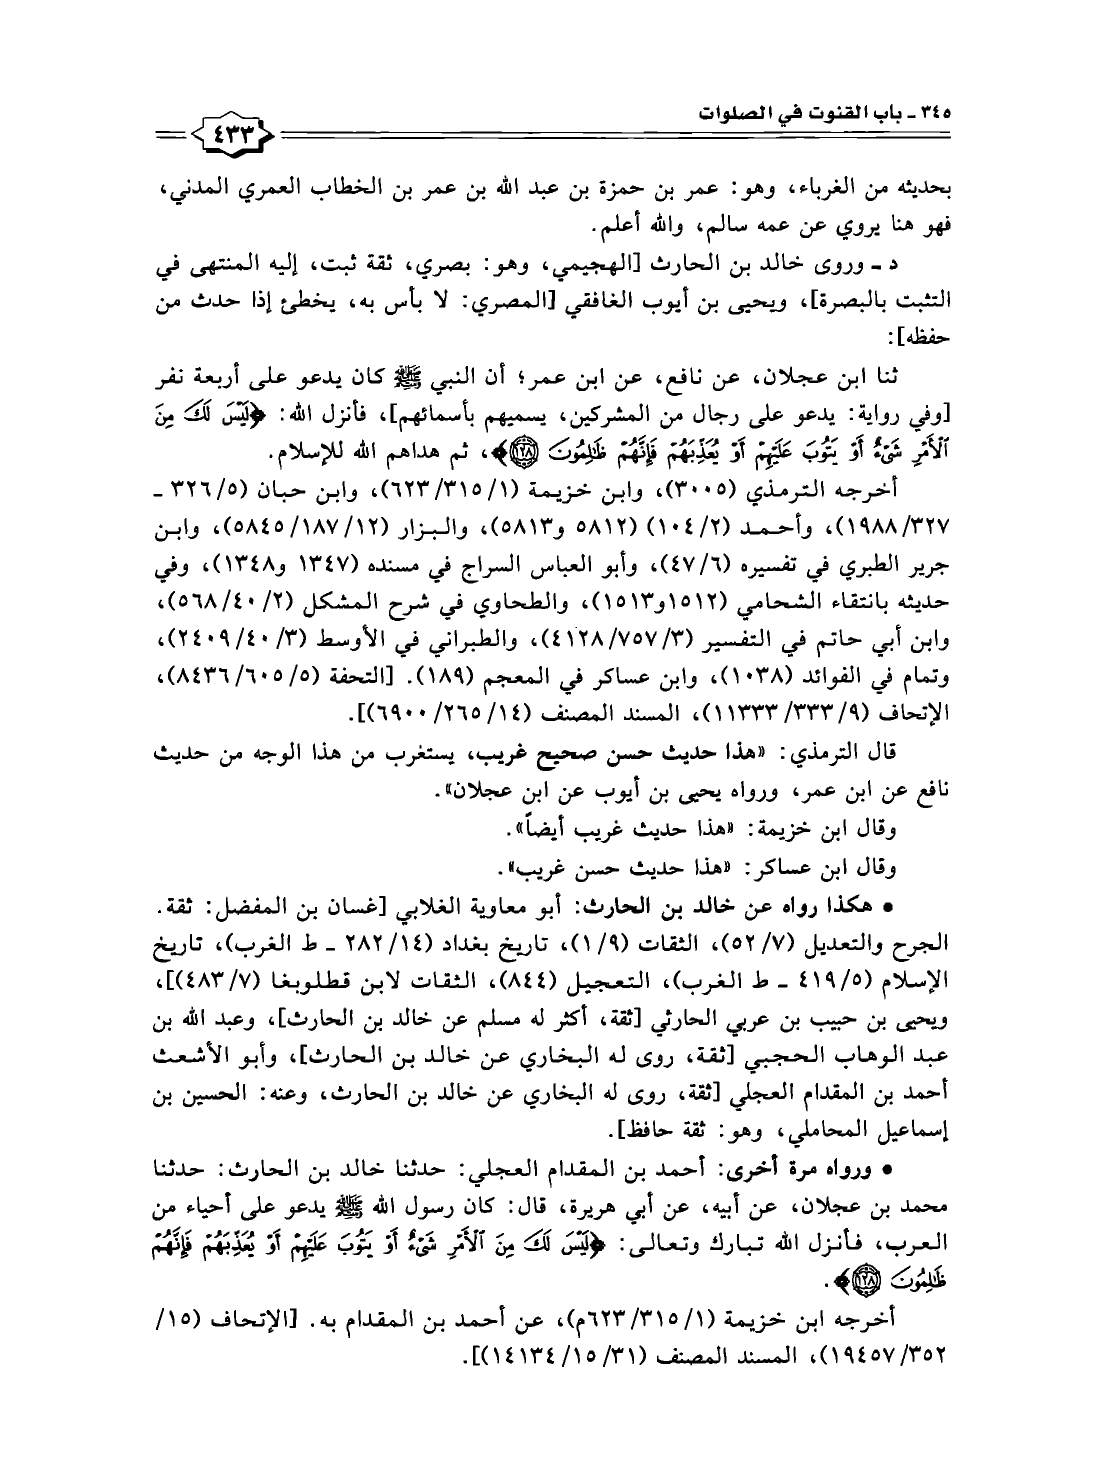 ٣٤٥ - باب القنوت في الصلوات
٤٣٣
بحديثه من الغرباء، وهو: عمر بن حمزة بن عبد الله بن عمر بن الخطاب العمري المدني،
فهو هنا يروي عن عمه سالم، والله أعلم.
د - وروى خالد بن الحارث [الهجيمي، وهو: بصري، ثقة ثبت، إليه المنتهى في
التثبت بالبصرة]، ويحيى بن أيوب الغافقي [المصري: لا بأس به، يخطئ إذا حدث من
حفظه]:
ثنا ابن عجلان، عن نافع، عن ابن عمر؛ أن النبي ﷺ كان يدعو على أربعة نفر
[وفي رواية: يدعو على رجال من المشركين، يسميهم بأسمائهم]، فأنزل الله: ﴿لَيْسَ لَكَ مِنَ
ٱلْأَمْرِ شَىْءٌ أَوْ يَتُوبَ عَلَيْهِمْ أَوْ يُعَذِّبَهُمْ فَإِنَّهُمْ ظَٰلِمُونَ ١٢٨﴾، ثم هداهم الله للإسلام.
أخرجه الترمذي (٣٠٠٥)، وابن خزيمة (٦٢٣/٣١٥/١)، وابن حبان (٣٢٦/٥ -
١٩٨٨/٣٢٧)، وأحمد (١٠٤/٢) (٥٨١٢ و٥٨١٣)، والبزار (٥٨٤٥/١٨٧/١٢)، وابن
جرير الطبري في تفسيره (٤٧/٦)، وأبو العباس السراج في مسنده (١٣٤٧ و١٣٤٨)، وفي
حديثه بانتقاء الشحامي (١٥١٢و١٥١٣)، والطحاوي في شرح المشكل (٥٦٨/٤٠/٢)،
وابن أبي حاتم في التفسير (٤١٢٨/٧٥٧/٣)، والطبراني في الأوسط (٢٤٠٩/٤٠/٣)،
وتمام في الفوائد (١٠٣٨)، وابن عساكر في المعجم (١٨٩). [التحفة (٨٤٣٦/٦٠٥/٥)،
الإتحاف (١١٣٣٣/٣٣٣/٩)، المسند المصنف (٦٩٠٠/٢٦٥/١٤)].
قال الترمذي: «هذا حديث حسن صحيح غريب، يستغرب من هذا الوجه من حديث
نافع عن ابن عمر، ورواه يحيى بن أيوب عن ابن عجلان».
وقال ابن خزيمة: «هذا حديث غريب أيضاً».
وقال ابن عساكر: «هذا حديث حسن غريب».
• هكذا رواه عن خالد بن الحارث: أبو معاوية الغلابي [غسان بن المفضل: ثقة.
الجرح والتعديل (٥٢/٧)، الثقات (١/٩)، تاريخ بغداد (٢٨٢/١٤ - ط الغرب)، تاريخ
الإسلام (٤١٩/٥ - ط الغرب)، التعجيل (٨٤٤)، الثقات لابن قطلوبغا (٤٨٣/٧)]،
ويحيى بن حبيب بن عربي الحارثي [ثقة، أكثر له مسلم عن خالد بن الحارث]، وعبد الله بن
عبد الوهاب الحجبي [ثقة، روى له البخاري عن خالد بن الحارث]، وأبو الأشعث
أحمد بن المقدام العجلي [ثقة، روى له البخاري عن خالد بن الحارث، وعنه: الحسين بن
إسماعيل المحاملي، وهو: ثقة حافظ].
• ورواه مرة أخرى: أحمد بن المقدام العجلي: حدثنا خالد بن الحارث: حدثنا
محمد بن عجلان، عن أبيه، عن أبي هريرة، قال: كان رسول الله ﷺ يدعو على أحياء من
العرب، فأنزل الله تبارك وتعالى: ﴿لَيْسَ لَكَ مِنَ ٱلْأَمْرِ شَىْءٌ أَوْ يَتُوبَ عَلَيْهِمْ أَوْ يُعَذِّبَهُمْ فَإِنَّهُمْ
ظَٰلِمُونَ ١٢٨﴾.
أخرجه ابن خزيمة (٦٢٣/٣١٥/١م)، عن أحمد بن المقدام به. [الإتحاف (١٥/
١٩٤٥٧/٣٥٢)، المسند المصنف (١٤١٣٤/١٥/٣١)].